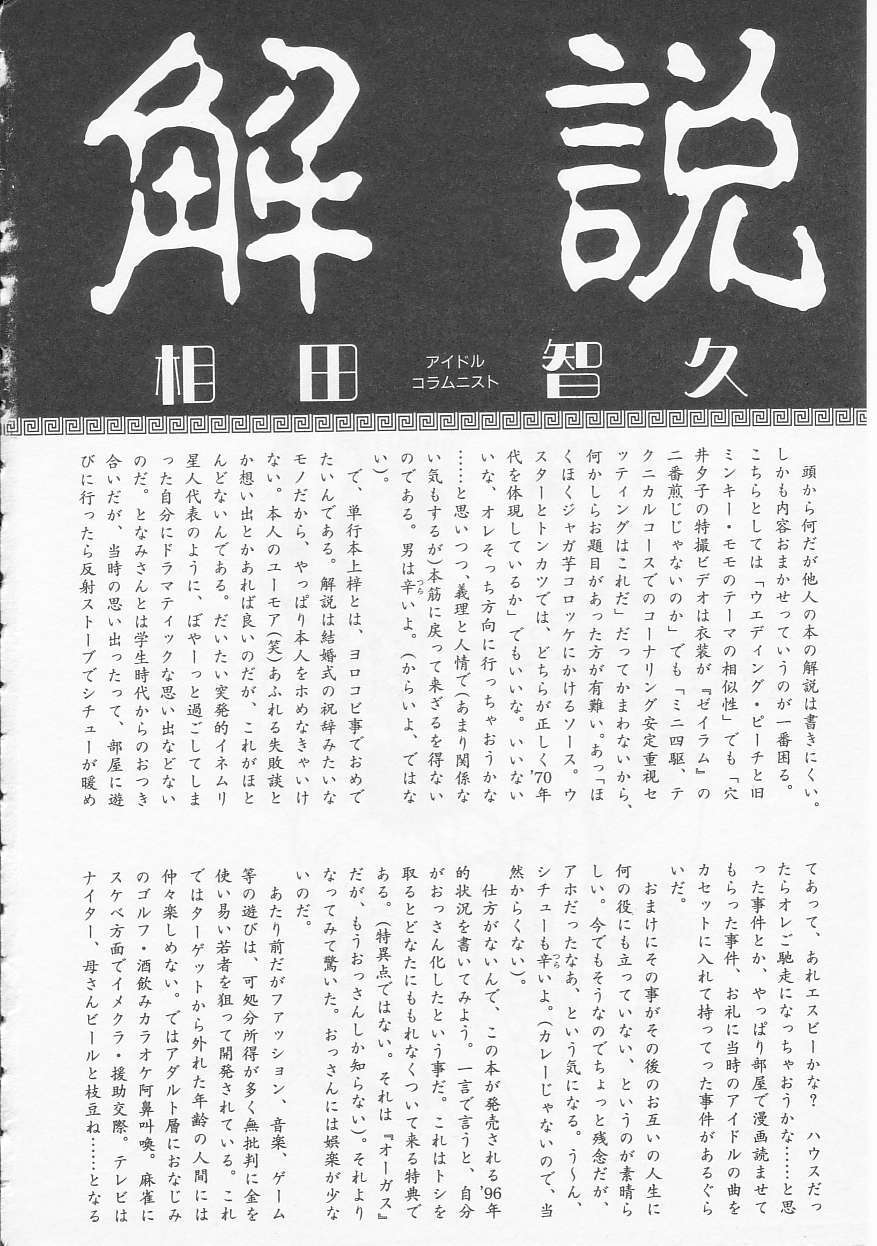 解説
相田智久
アイドル
コラムニスト
頭から何だが他人の本の解説は書きにくい。
しかも内容おまかせっていうのが一番困る。
こちらとしては「ウエディング・ピーチと旧
ミンキー・モモのテーマの相似性」でも「穴
井夕子の特撮ビデオは衣装が『ゼイラム』の
二番煎じじゃないのか」でも「ミニ四駆、テ
クニカルコースでのコーナリング安定重視セ
ッティングはこれだ」だってかまわないから、
何かしらお題目があった方が有難い。あっ「ほ
くほくジャガ芋コロッケにかけるソース。ウ
スターとトンカツでは、どちらが正しく'70年
代を体現しているか」でもいいな。いいない
いな、オレそっち方向に行っちゃおうかな
……と思いつつ、義理と人情で(あまり関係な
い気もするが)本筋に戻って来ざるを得ない
のである。男は辛いよ。(からいよ、ではな
つら
い)。
で、単行本上梓とは、ヨロコビ事でおめで
たいんである。解説は結婚式の祝辞みたいな
モノだから、やっぱり本人をホめなきゃいけ
ない。本人のユーモア(笑)あふれる失敗談と
か想い出とかあれば良いのだが、これがほと
んどないんである。だいたい突発的イネムリ
星人代表のように、ぼやーっと過ごしてしま
った自分にドラマティックな思い出などない
のだ。となみさんとは学生時代からのおつき
合いだが、当時の思い出ったって、部屋に遊
びに行ったら反射ストーブでシチューが暖め
てあって、あれエスビーかな? ハウスだっ
たらオレご馳走になっちゃおうかな……と思
った事件とか、やっぱり部屋で漫画読ませて
もらった事件、お礼に当時のアイドルの曲を
カセットに入れて持ってった事件があるぐら
いだ。
おまけにその事がその後のお互いの人生に
何の役にも立っていない、というのが素晴ら
しい。今でもそうなのでちょっと残念だが、
アホだったなあ、という気になる。う〜ん、
シチューも辛いよ。(カレーじゃないので、当
つら
然からくない)。
仕方がないんで、この本が発売される'96年
的状況を書いてみよう。一言で言うと、自分
がおっさん化したという事だ。これはトシを
取るとどなたにももれなくついて来る特典で
ある。(特異点ではない。それは『オーガス』
だが、もうおっさんしか知らない)。それより
なってみて驚いた。おっさんには娯楽が少な
いのだ。
あたり前だがファッション、音楽、ゲーム
等の遊びは、可処分所得が多く無批判に金を
使い易い若者を狙って開発されている。これ
ではターゲットから外れた年齢の人間には
仲々楽しめない。ではアダルト層におなじみ
のゴルフ・酒飲みカラオケ阿鼻叫喚。麻雀に
スケベ方面でイメクラ・援助交際。テレビは
ナイター、母さんビールと枝豆ね……となる